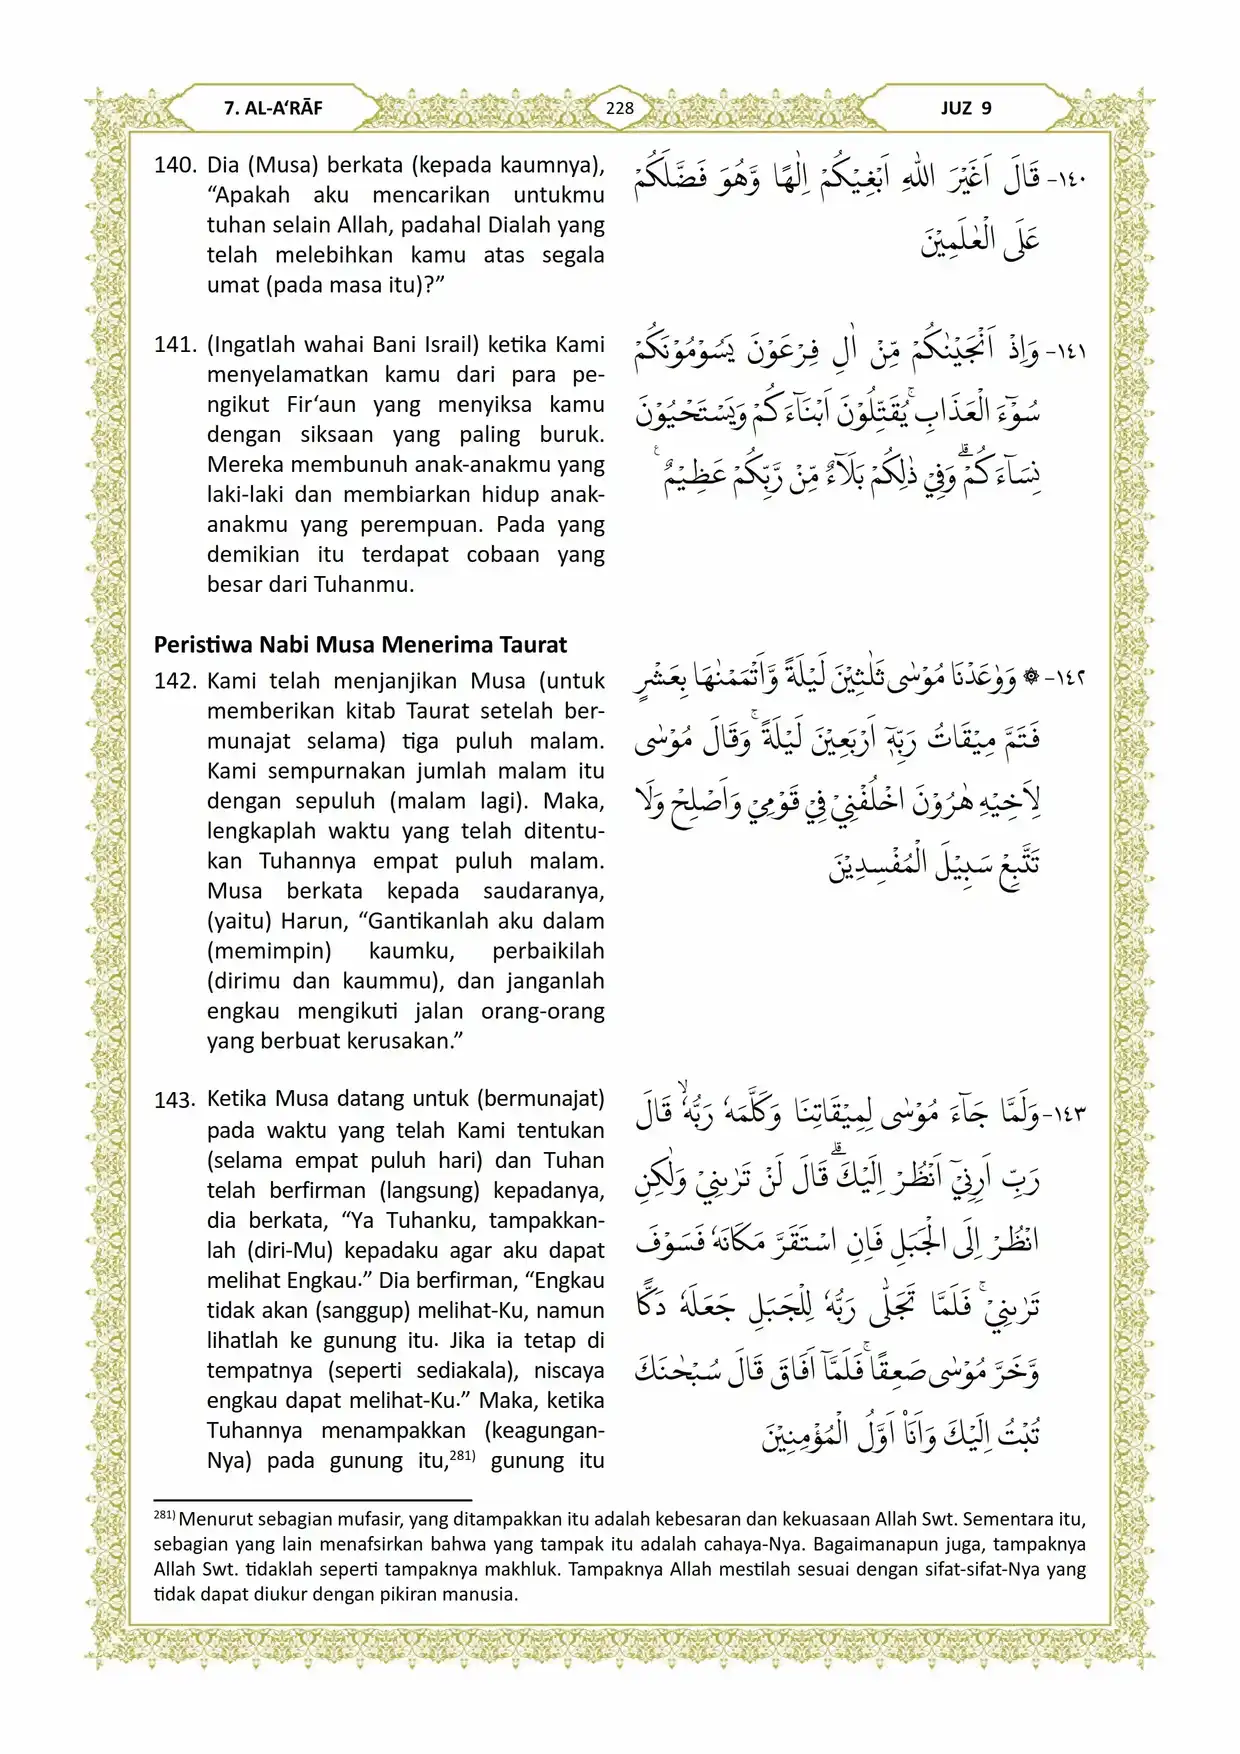 7. AL-A‘RĀF
228
JUZ 9
140. Dia (Musa) berkata (kepada kaumnya),
“Apakah aku mencarikan untukmu
tuhan selain Allah, padahal Dialah yang
telah melebihkan kamu atas segala
umat (pada masa itu)?”
١٤٠- قَالَ اَغَيْرَ اللّٰهِ اَبْغِيْكُمْ اِلٰهًا وَّهُوَ فَضَّلَكُمْ
عَلَى الْعٰلَمِيْنَ
141. (Ingatlah wahai Bani Israil) ketika Kami
menyelamatkan kamu dari para pe-
ngikut Fir‘aun yang menyiksa kamu
dengan siksaan yang paling buruk.
Mereka membunuh anak-anakmu yang
laki-laki dan membiarkan hidup anak-
anakmu yang perempuan. Pada yang
demikian itu terdapat cobaan yang
besar dari Tuhanmu.
١٤١- وَاِذْ اَنْجَيْنٰكُمْ مِّنْ اٰلِ فِرْعَوْنَ يَسُوْمُوْنَكُمْ
سُوْۤءَ الْعَذَابِۚ يُقَتِّلُوْنَ اَبْنَاۤءَكُمْ وَيَسْتَحْيُوْنَ
نِسَاۤءَكُمْۗ وَفِيْ ذٰلِكُمْ بَلَاۤءٌ مِّنْ رَّبِّكُمْ عَظِيْمٌ ࣖ
Peristiwa Nabi Musa Menerima Taurat
142. Kami telah menjanjikan Musa (untuk
memberikan kitab Taurat setelah ber-
munajat selama) tiga puluh malam.
Kami sempurnakan jumlah malam itu
dengan sepuluh (malam lagi). Maka,
lengkaplah waktu yang telah ditentu-
kan Tuhannya empat puluh malam.
Musa berkata kepada saudaranya,
(yaitu) Harun, “Gantikanlah aku dalam
(memimpin) kaumku, perbaikilah
(dirimu dan kaummu), dan janganlah
engkau mengikuti jalan orang-orang
yang berbuat kerusakan.”
١٤٢- ۞ وَوٰعَدْنَا مُوْسٰى ثَلٰثِيْنَ لَيْلَةً وَّاَتْمَمْنٰهَا بِعَشْرٍ
فَتَمَّ مِيْقَاتُ رَبِّهٖٓ اَرْبَعِيْنَ لَيْلَةًۚ وَقَالَ مُوْسٰى
لِاَخِيْهِ هٰرُوْنَ اخْلُفْنِيْ فِيْ قَوْمِيْ وَاَصْلِحْ وَلَا
تَتَّبِعْ سَبِيْلَ الْمُفْسِدِيْنَ
143. Ketika Musa datang untuk (bermunajat)
pada waktu yang telah Kami tentukan
(selama empat puluh hari) dan Tuhan
telah berfirman (langsung) kepadanya,
dia berkata, “Ya Tuhanku, tampakkan-
lah (diri-Mu) kepadaku agar aku dapat
melihat Engkau.” Dia berfirman, “Engkau
tidak akan (sanggup) melihat-Ku, namun
lihatlah ke gunung itu. Jika ia tetap di
tempatnya (seperti sediakala), niscaya
engkau dapat melihat-Ku.” Maka, ketika
Tuhannya menampakkan (keagungan-
Nya) pada gunung itu,281) gunung itu
١٤٣- وَلَمَّا جَاۤءَ مُوْسٰى لِمِيْقَاتِنَا وَكَلَّمَهٗ رَبُّهٗۙ قَالَ
رَبِّ اَرِنِيْٓ اَنْظُرْ اِلَيْكَۗ قَالَ لَنْ تَرٰىنِيْ وَلٰكِنِ
انْظُرْ اِلَى الْجَبَلِ فَاِنِ اسْتَقَرَّ مَكَانَهٗ فَسَوْفَ
تَرٰىنِيْۚ فَلَمَّا تَجَلّٰى رَبُّهٗ لِلْجَبَلِ جَعَلَهٗ دَكًّا
وَّخَرَّ مُوْسٰى صَعِقًاۚ فَلَمَّآ اَفَاقَ قَالَ سُبْحٰنَكَ
تُبْتُ اِلَيْكَ وَاَنَا۠ اَوَّلُ الْمُؤْمِنِيْنَ
281) Menurut sebagian mufasir, yang ditampakkan itu adalah kebesaran dan kekuasaan Allah Swt. Sementara itu,
sebagian yang lain menafsirkan bahwa yang tampak itu adalah cahaya-Nya. Bagaimanapun juga, tampaknya
Allah Swt. tidaklah seperti tampaknya makhluk. Tampaknya Allah mestilah sesuai dengan sifat-sifat-Nya yang
tidak dapat diukur dengan pikiran manusia.